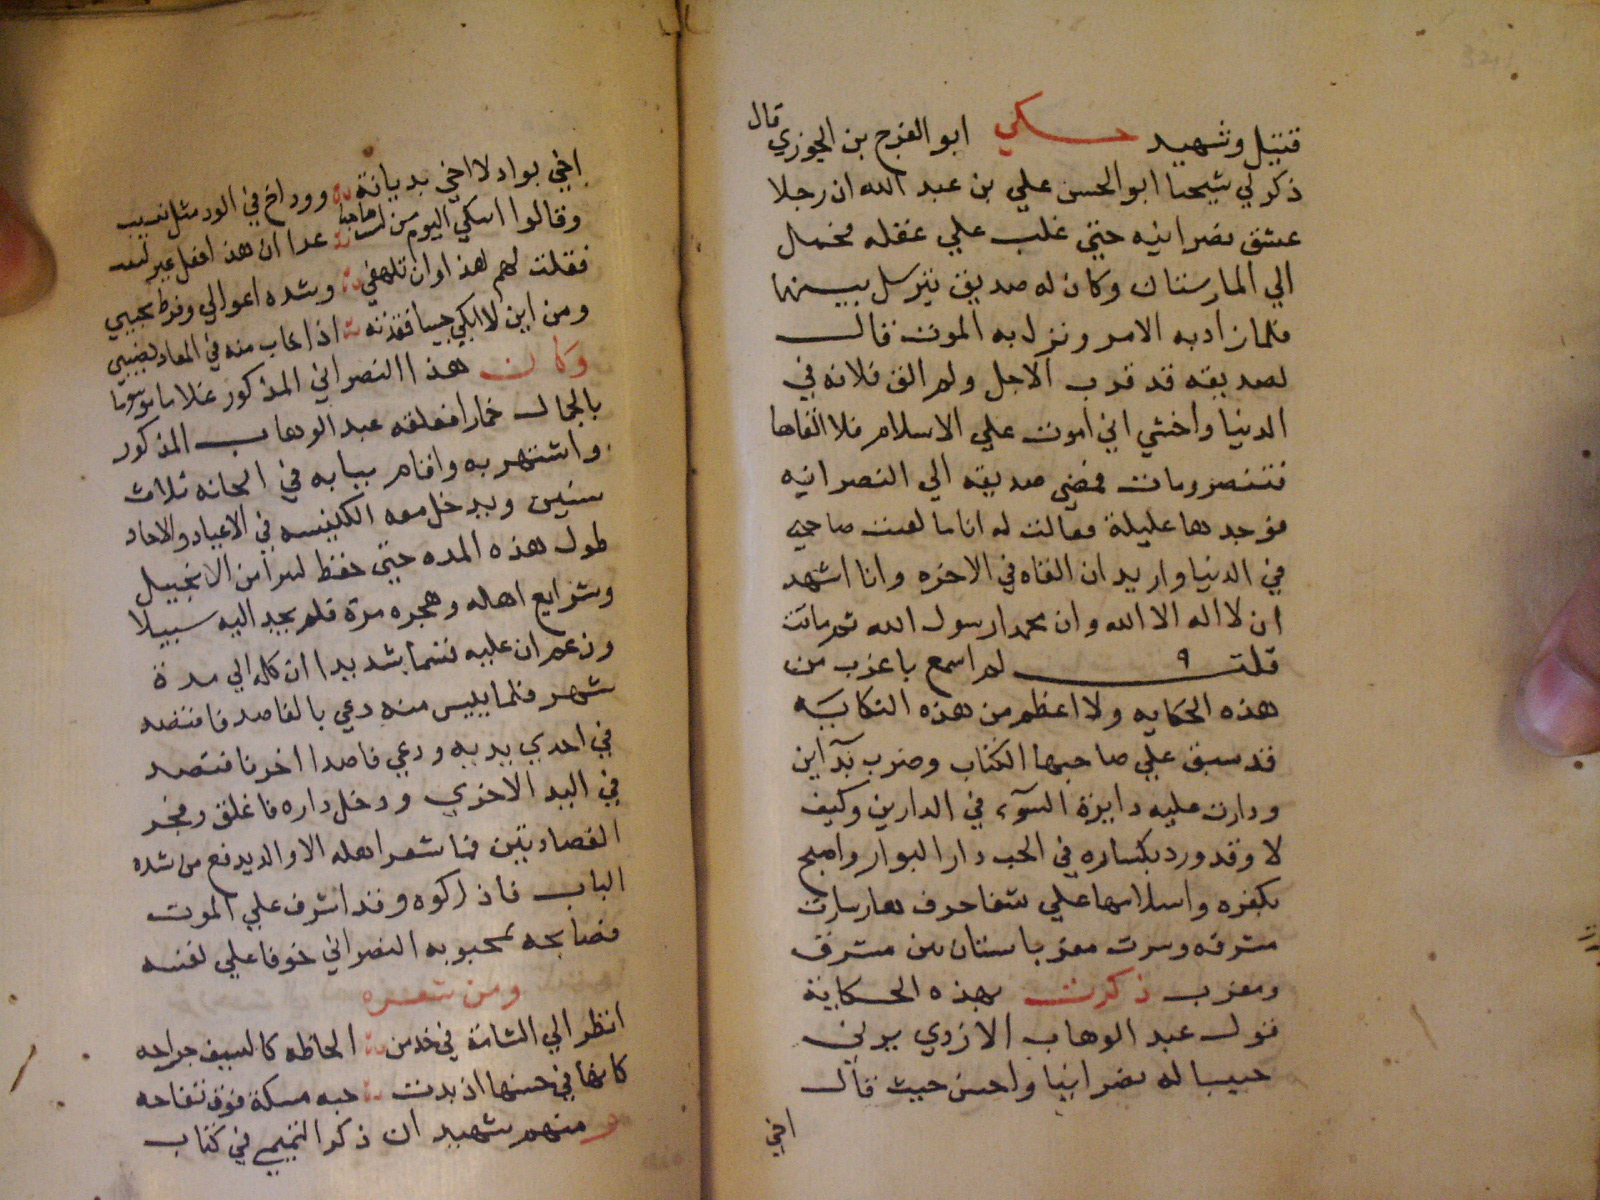 قتيل وشهيد حكي ابو الفرج بن الجوزي قال
ذكر لي شيخنا ابو الحسن علي بن عبد الله ان رجلا
عشق نصرانيه حتي غلب علي عقله فحمل
الي المارستان وكان له صديق يترسل بينهما
فلما زاد به الامر ونزل به الموت قال
لصديقه قد قرب الاجل ولم الق فلانه في
الدنيا واخشي اني اموت علي الاسلام فلا القاها
فتنصر ومات فمضي صديقه الي النصرانيه
فوجدها عليلة فقالت له انا ما لقيت صاحبي
في الدنيا واريد ان القاه في الاخره وانا اشهد
ان لا اله الا الله وان محمدا رسول الله ثم ماتت
قلت لم اسمع باغرب من
هذه الحكايه ولا اعظم من هذه النكايه
قد سبق علي صاحبها الكتاب وضرب
ودارت عليه دايرة السوء في الدارين وكيف
لا وقد ورد بكساده في الحب دار البوار واصبح
بكفره واسلامها علي شفا جرف هار سارت
مشرقه وسرت مغربا شتان بين مشرق
ومغرب ذكرت بهذه الحكاية
قول عبد الوهاب الازدي يرثي
حبيبا له نصرانيا واحسن حيث قال
اخي
اخي بوداد لا اخي بديانة ورد اخ في الود مثل نسيب
وقالوا اتبكي اليوم من لست صاحبا غدا ان هذا فعل غير لبيب
فقلت لهم هذا اوان تلهفي وشده اعوالي وفرط نحيبي
ومن اين لا ابكي حبيبا فقدته اذا غاب منه في المعاد نصيبي
وكان هذا النصراني المذكور غلاما موسوما
بالجمال خمارا فعلقه عبد الوهاب المذكور
واشتهر به واقام ببابه في الحانه ثلاث
سنين ويدخل معه الكنيسه في الاعياد والاحاد
طول هذه المده حتي حفظ كثيرا من الانجيل
وشرايع اهله وهجره مرة فلم يجد اليه سبيلا
وزعم ان عليه قسما شديدا ان كله الي مدة
شهر فلما ييس منه دعي بالفاصد فافتصد
في احدي يديه ودعي فاصدا اخر فافتصد
في اليد الاخري ودخل داره فاغلق وفجر
الفصادتين فما شعر اهله الا والدم يدفع من شده
الباب فادركوه وقد اشرف علي الموت
فصالحه محبوبه النصراني خوفا علي نفسه
ومن شعره
انظر الي الشامة في خد من الحاظه كالسيف جراحه
كانها في حسنها اذ بدت حبه مسكة فوق تفاحه
ومنهم شهيد ان ذكر التميمي في كتاب